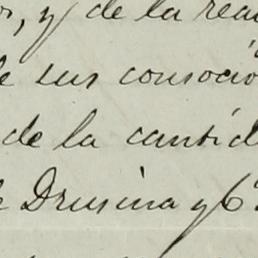 y de la rea
sus consocio
de la cantid
Drusina y Cª